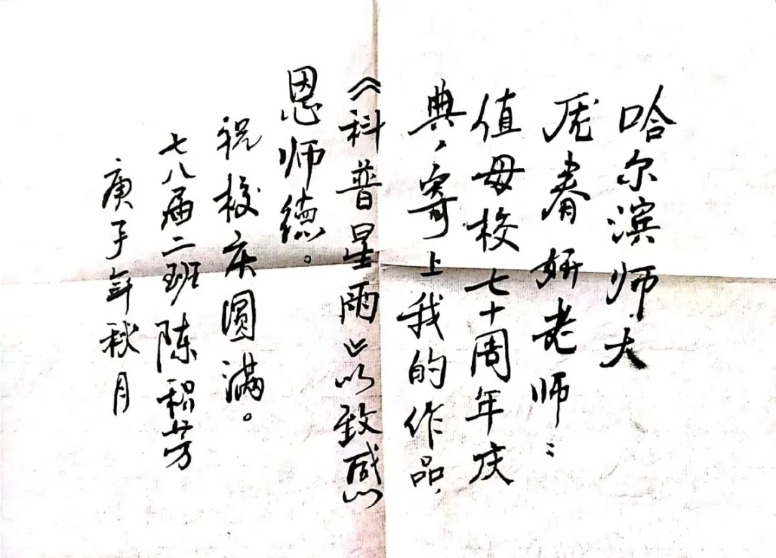 哈尔滨师大
庞春妍老师：
值母校七十周年庆
典，寄上我的作品，
《科普星雨》以致感
恩师德。
祝校庆圆满。
七八届二班陈积芳
庚子年秋月